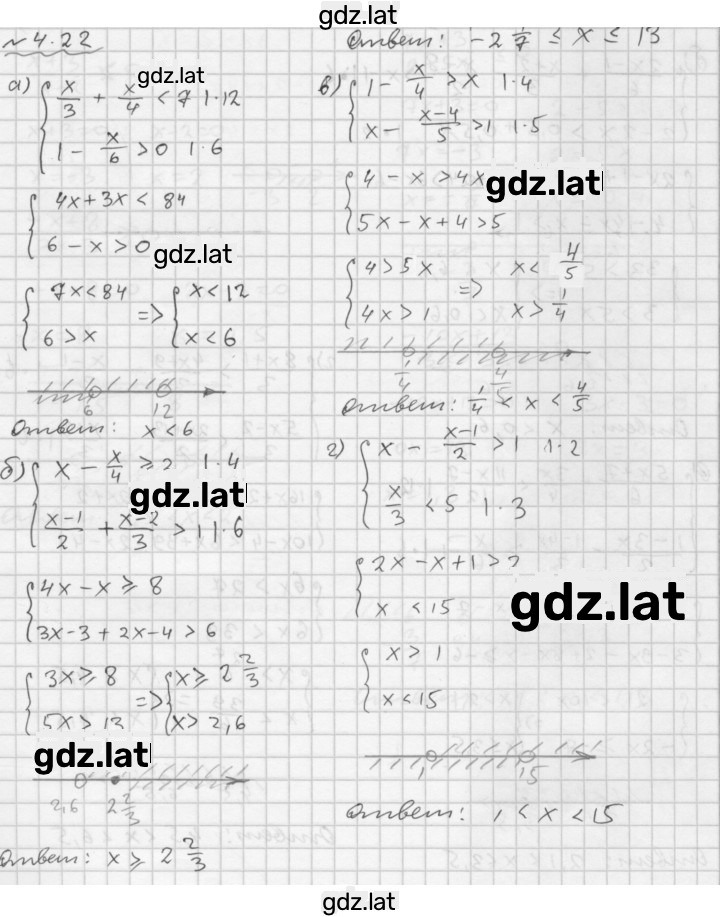 gdz.lat
№ 4.22
а) { x/3 + x/4 < 7 | · 12
gdz.lat
1 - x/6 > 0 | · 6
{ 4x + 3x < 84
6 - x > 0
gdz.lat
{ 7x < 84 => { x < 12
6 > x x < 6
6 12
Ответ: x < 6
б) { x - x/4 ≥ 2 | · 4
gdz.lat
(x-1)/2 + (x-2)/3 > 1 | · 6
{ 4x - x ≥ 8
3x - 3 + 2x - 4 > 6
{ 3x ≥ 8 => { x ≥ 2 2/3
5x > 13 x > 2,6
gdz.lat
2,6 2 2/3
Ответ: x ≥ 2 2/3
Ответ: -2 1/7 ≤ x ≤ 13
в) { 1 - x/4 > x | · 4
x - (x-4)/5 > 1 | · 5
{ 4 - x > 4x
gdz.lat
5x - x + 4 > 5
{ 4 > 5x => x < 4/5
4x > 1 x > 1/4
1/4 4/5
Ответ: 1/4 < x < 4/5
г) { x - (x-1)/2 > 1 | · 2
x/3 < 5 | · 3
{ 2x - x + 1 > 2
x < 15
gdz.lat
{ x > 1
x < 15
1 15
Ответ: 1 < x < 15
gdz.lat